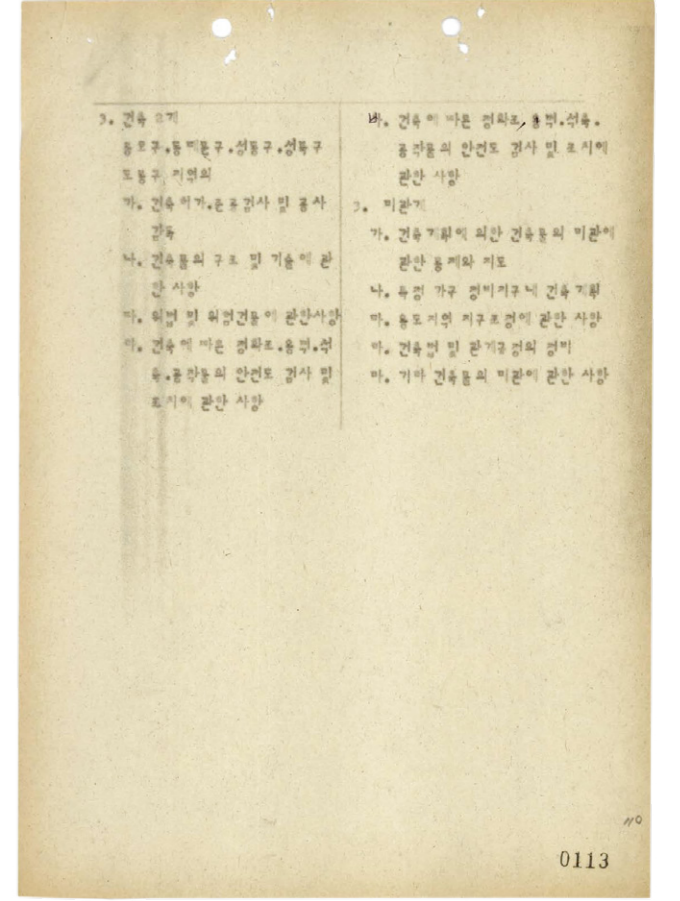 3. 건축 2계
동구.동대문구.성동구.성북구
도봉구 지역의
가. 건축허가.준공검사 및 공사
감독
나. 건축물의 구조 및 기술에 관
한 사항
다. 위법 및 위험건물에 관한사항
라. 건축에 따른 정화조.옹벽.석
축.공작물의 안전도 검사 및
조치에 관한 사항
바. 건축에 따른 정화조, 옹벽.석축.
공작물의 안전도 검사 및 조치에
관한 사항
3. 미관계
가. 건축계획에 의한 건축물의 미관에
관한 통제와 지도
나. 특정 가구 정비지구내 건축 계획
다. 용도지역 지구조정에 관한 사항
라. 건축법 및 관계규정의 정비
마. 기타 건축물의 미관에 관한 사항
110
0113